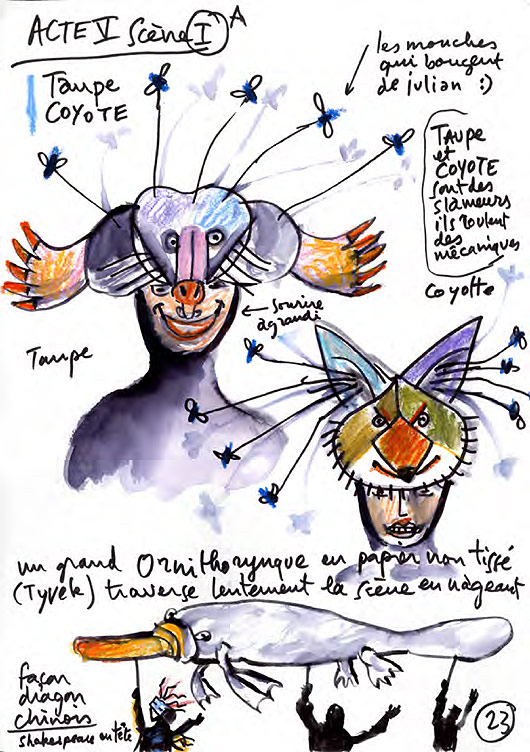 ACTE V scène I A
Taupe
COYOTE
les mouches
qui bougent
de julian :)
TAUPE
et
COYOTE
sont des
slameurs
ils roulent
des
mécaniques
Coyotte
sourire
agrandi
Taupe
un grand Ornithorynque en papier non tissé
(Tyvek) traverse lentement la scène en nageant
façon
dragon
chinois
shakespeare en tête
23